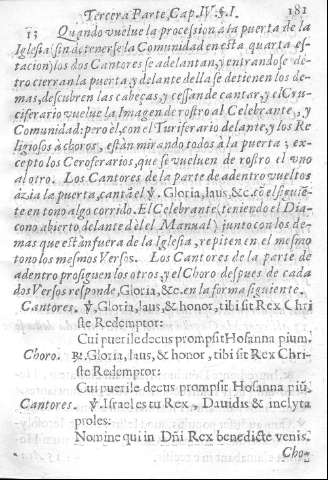 Tercera Parte, Cap. IV. §. I. 181
13 Quando vuelue la procession à la puerta de la
Iglesia (sin detenerse la Comunidad en esta quarta es-
tacion) los dos Cantores se adelantan, y entrandose dẽ-
tro cierran la puerta, y delante della se detienen los de-
mas, descubren las cabeças, y cessan de cantar, y el Cru-
ciferario vuelue la Imagen de rostro al Celebrante, y
Comunidad: pero èl, con el Turiferario delante, y los Re
ligiosos à choros, estàn mirando todos à la puerta; ex-
cepto los Ceroferarios, que se vueluen de rostro el vno
al otro. Los Cantores de la parte de adentro vueltos
àzia la puerta, cantã el ℣. Gloria, laus, &c. cõ el siguiẽ-
te en tono algo corrido. El Celebrante (teniendo el Dia-
cono abierto delante dèl el Manual) junto con los de-
mas que estàn fuera de la Iglesia, repiten en el mesmo
tono los mesmos Versos. Los Cantores de la parte de
adentro prosiguen los otros, y el Choro despues de cada
dos Versos responde, Gloria, &c. en la forma siguiente.
Cantores. ℣. Gloria, laus, & honor, tibi sit Rex Chri
ste Redemptor:
Cui puerile decus prompsit Hosanna pium.
Choro. ℟. Gloria, laus, & honor, tibi sit Rex Chri-
ste Redemptor:
Cui puerile decus prompsit Hosanna piũ.
Cantores. ℣. Israel es tu Rex, Dauidis & inclyta
proles:
Nomine qui in Dñi Rex benedicte venis.
Cho-